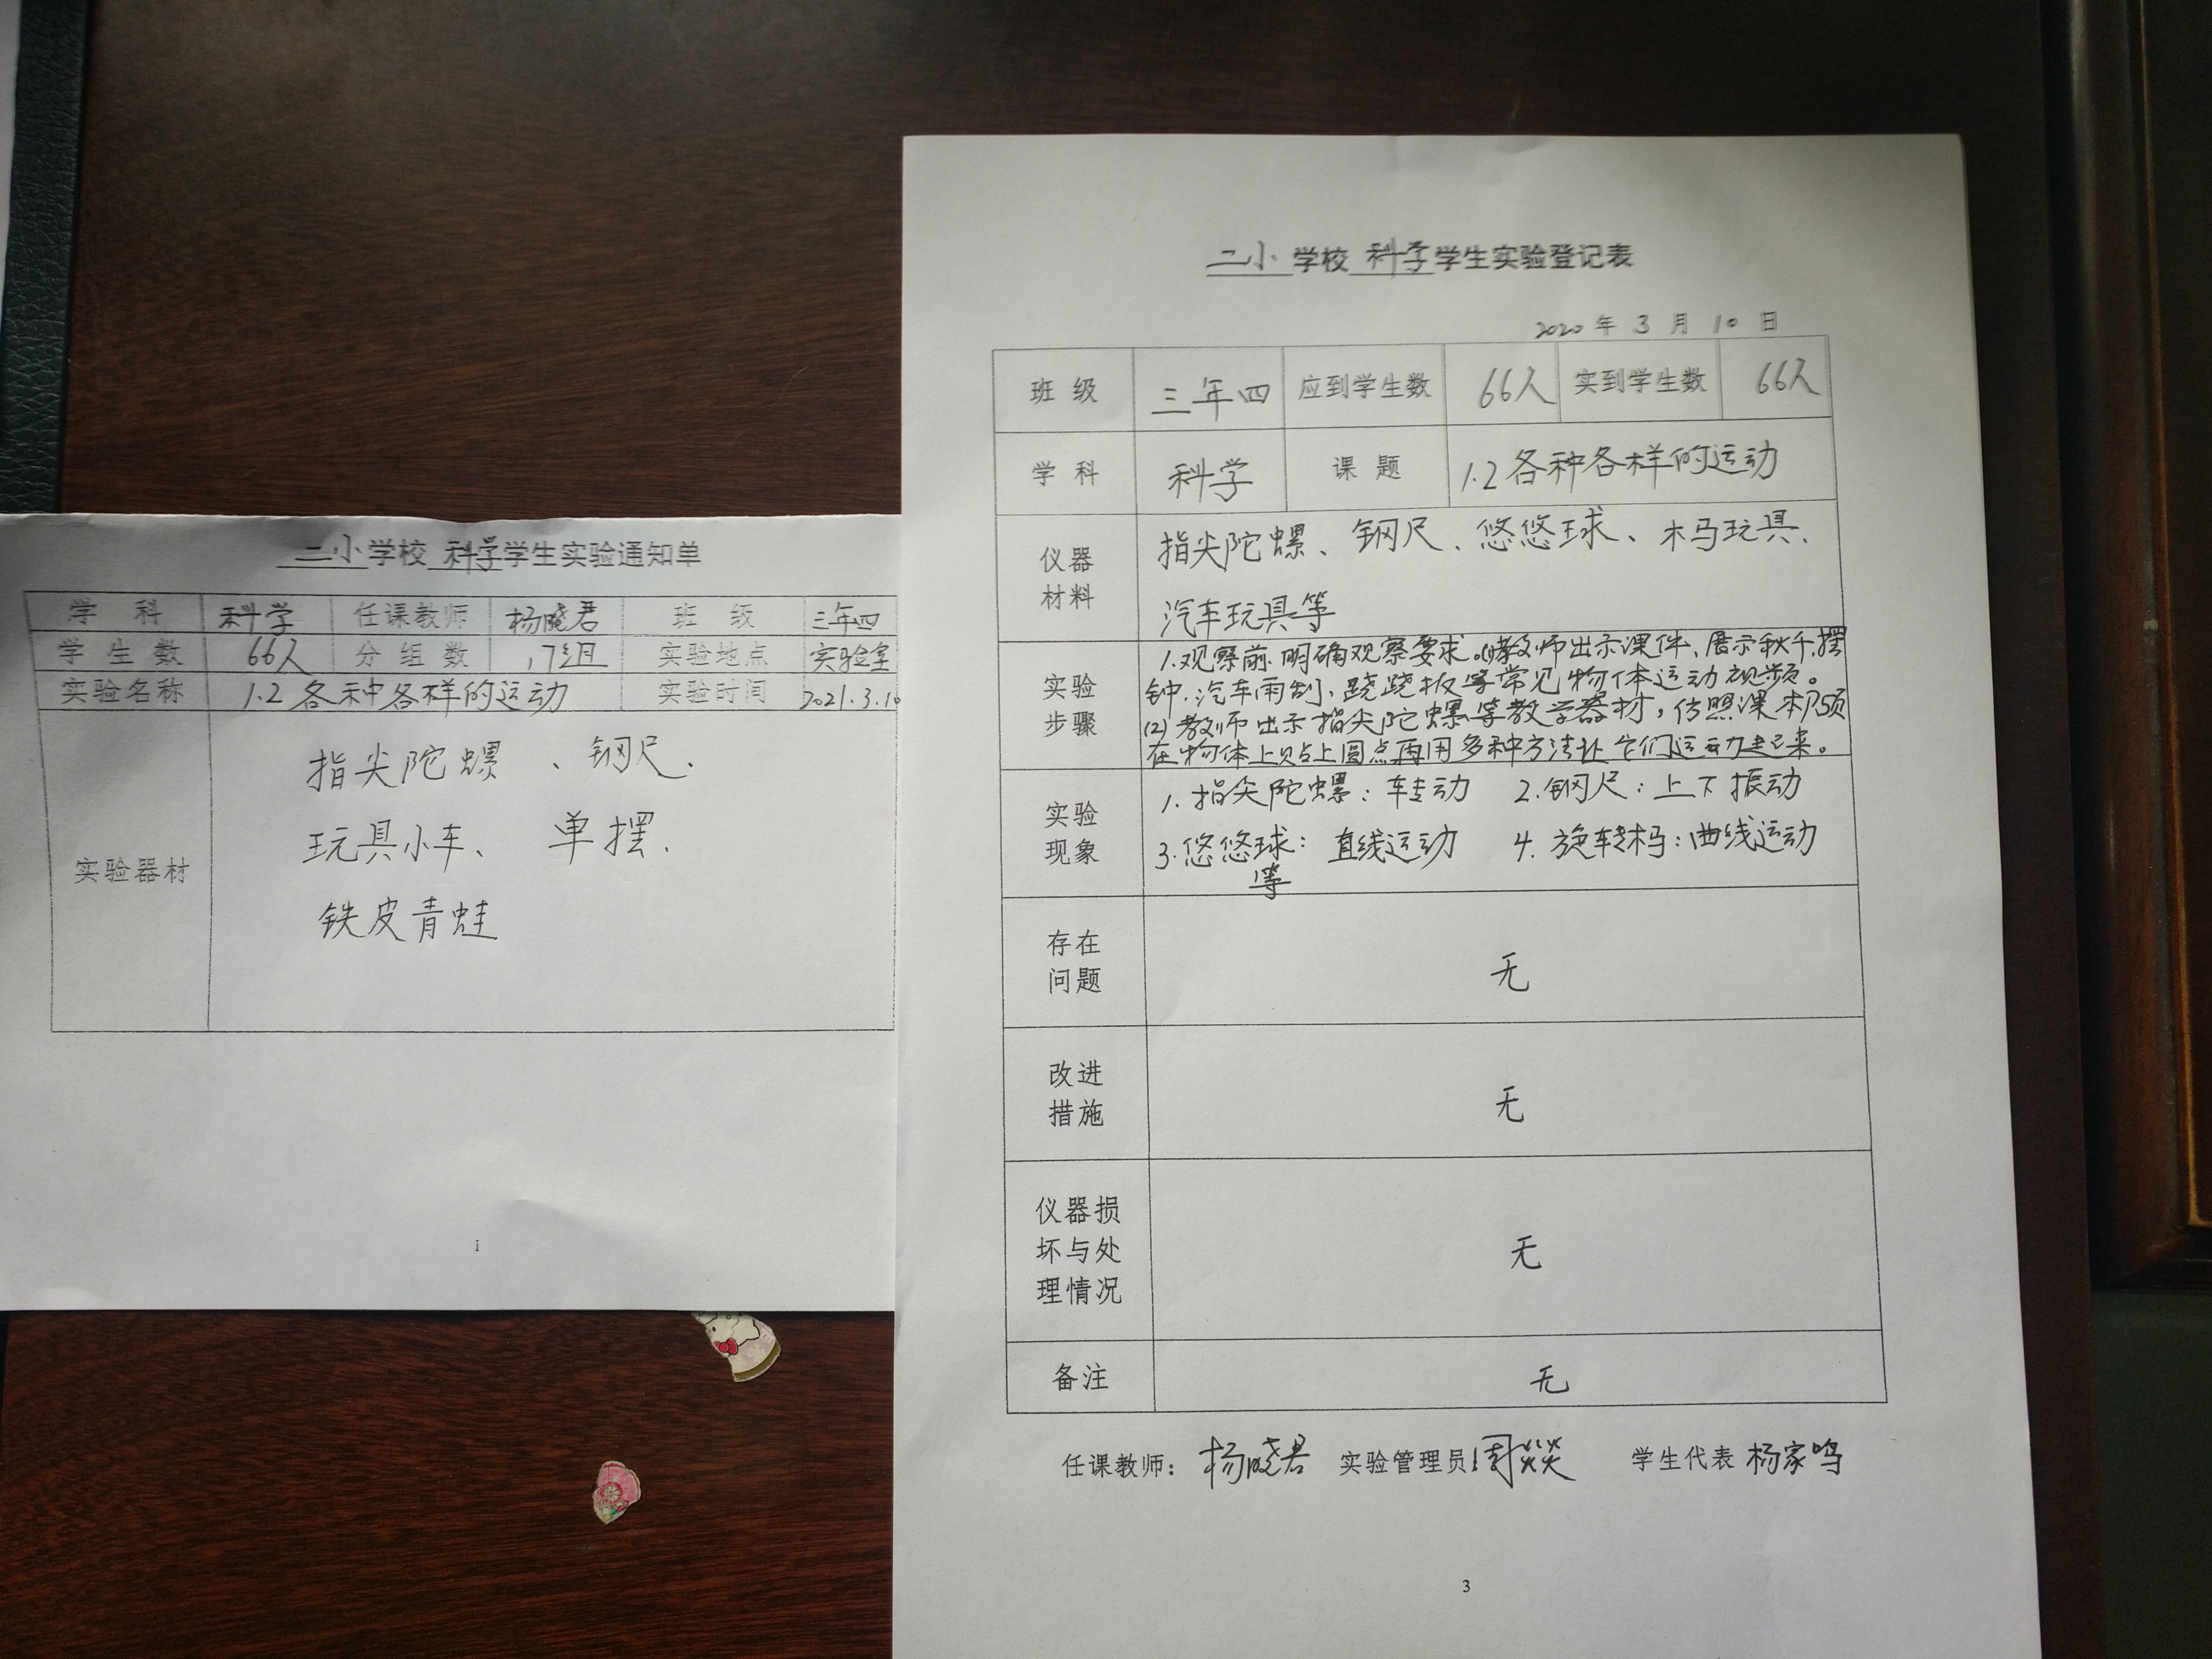 二小学校科学学生实验通知单
学科 科学 任课教师 杨晓君 班级 三年四
学生数 66人 分组数 17组 实验地点 实验室
实验名称 1.2各种各样的运动 实验时间 2021.3.10
实验器材
指尖陀螺、钢尺、
玩具小车、单摆、
铁皮青蛙
1
二小学校科学学生实验登记表
2020年3月10日
班级 三年四 应到学生数 66人 实到学生数 66人
学科 科学 课题 1.2各种各样的运动
仪器材料
指尖陀螺、钢尺、悠悠球、木马玩具、
汽车玩具等
实验步骤
1.观察前,明确观察要求。(1)教师出示课件,展示秋千,摆
钟,汽车雨刮,跷跷板等常见物体运动视频。
(2)教师出示指尖陀螺等教学器材,仿照课本P5页
在物体上贴上圆点再用多种方法让它们运动起来。
实验现象
1.指尖陀螺:转动 2.钢尺:上下振动
3.悠悠球:直线运动 4.旋转木马:曲线运动
等
存在问题 无
改进措施 无
仪器损坏与处理情况 无
备注 无
任课教师:杨晓君 实验管理员:周燚 学生代表 杨家鸣
3